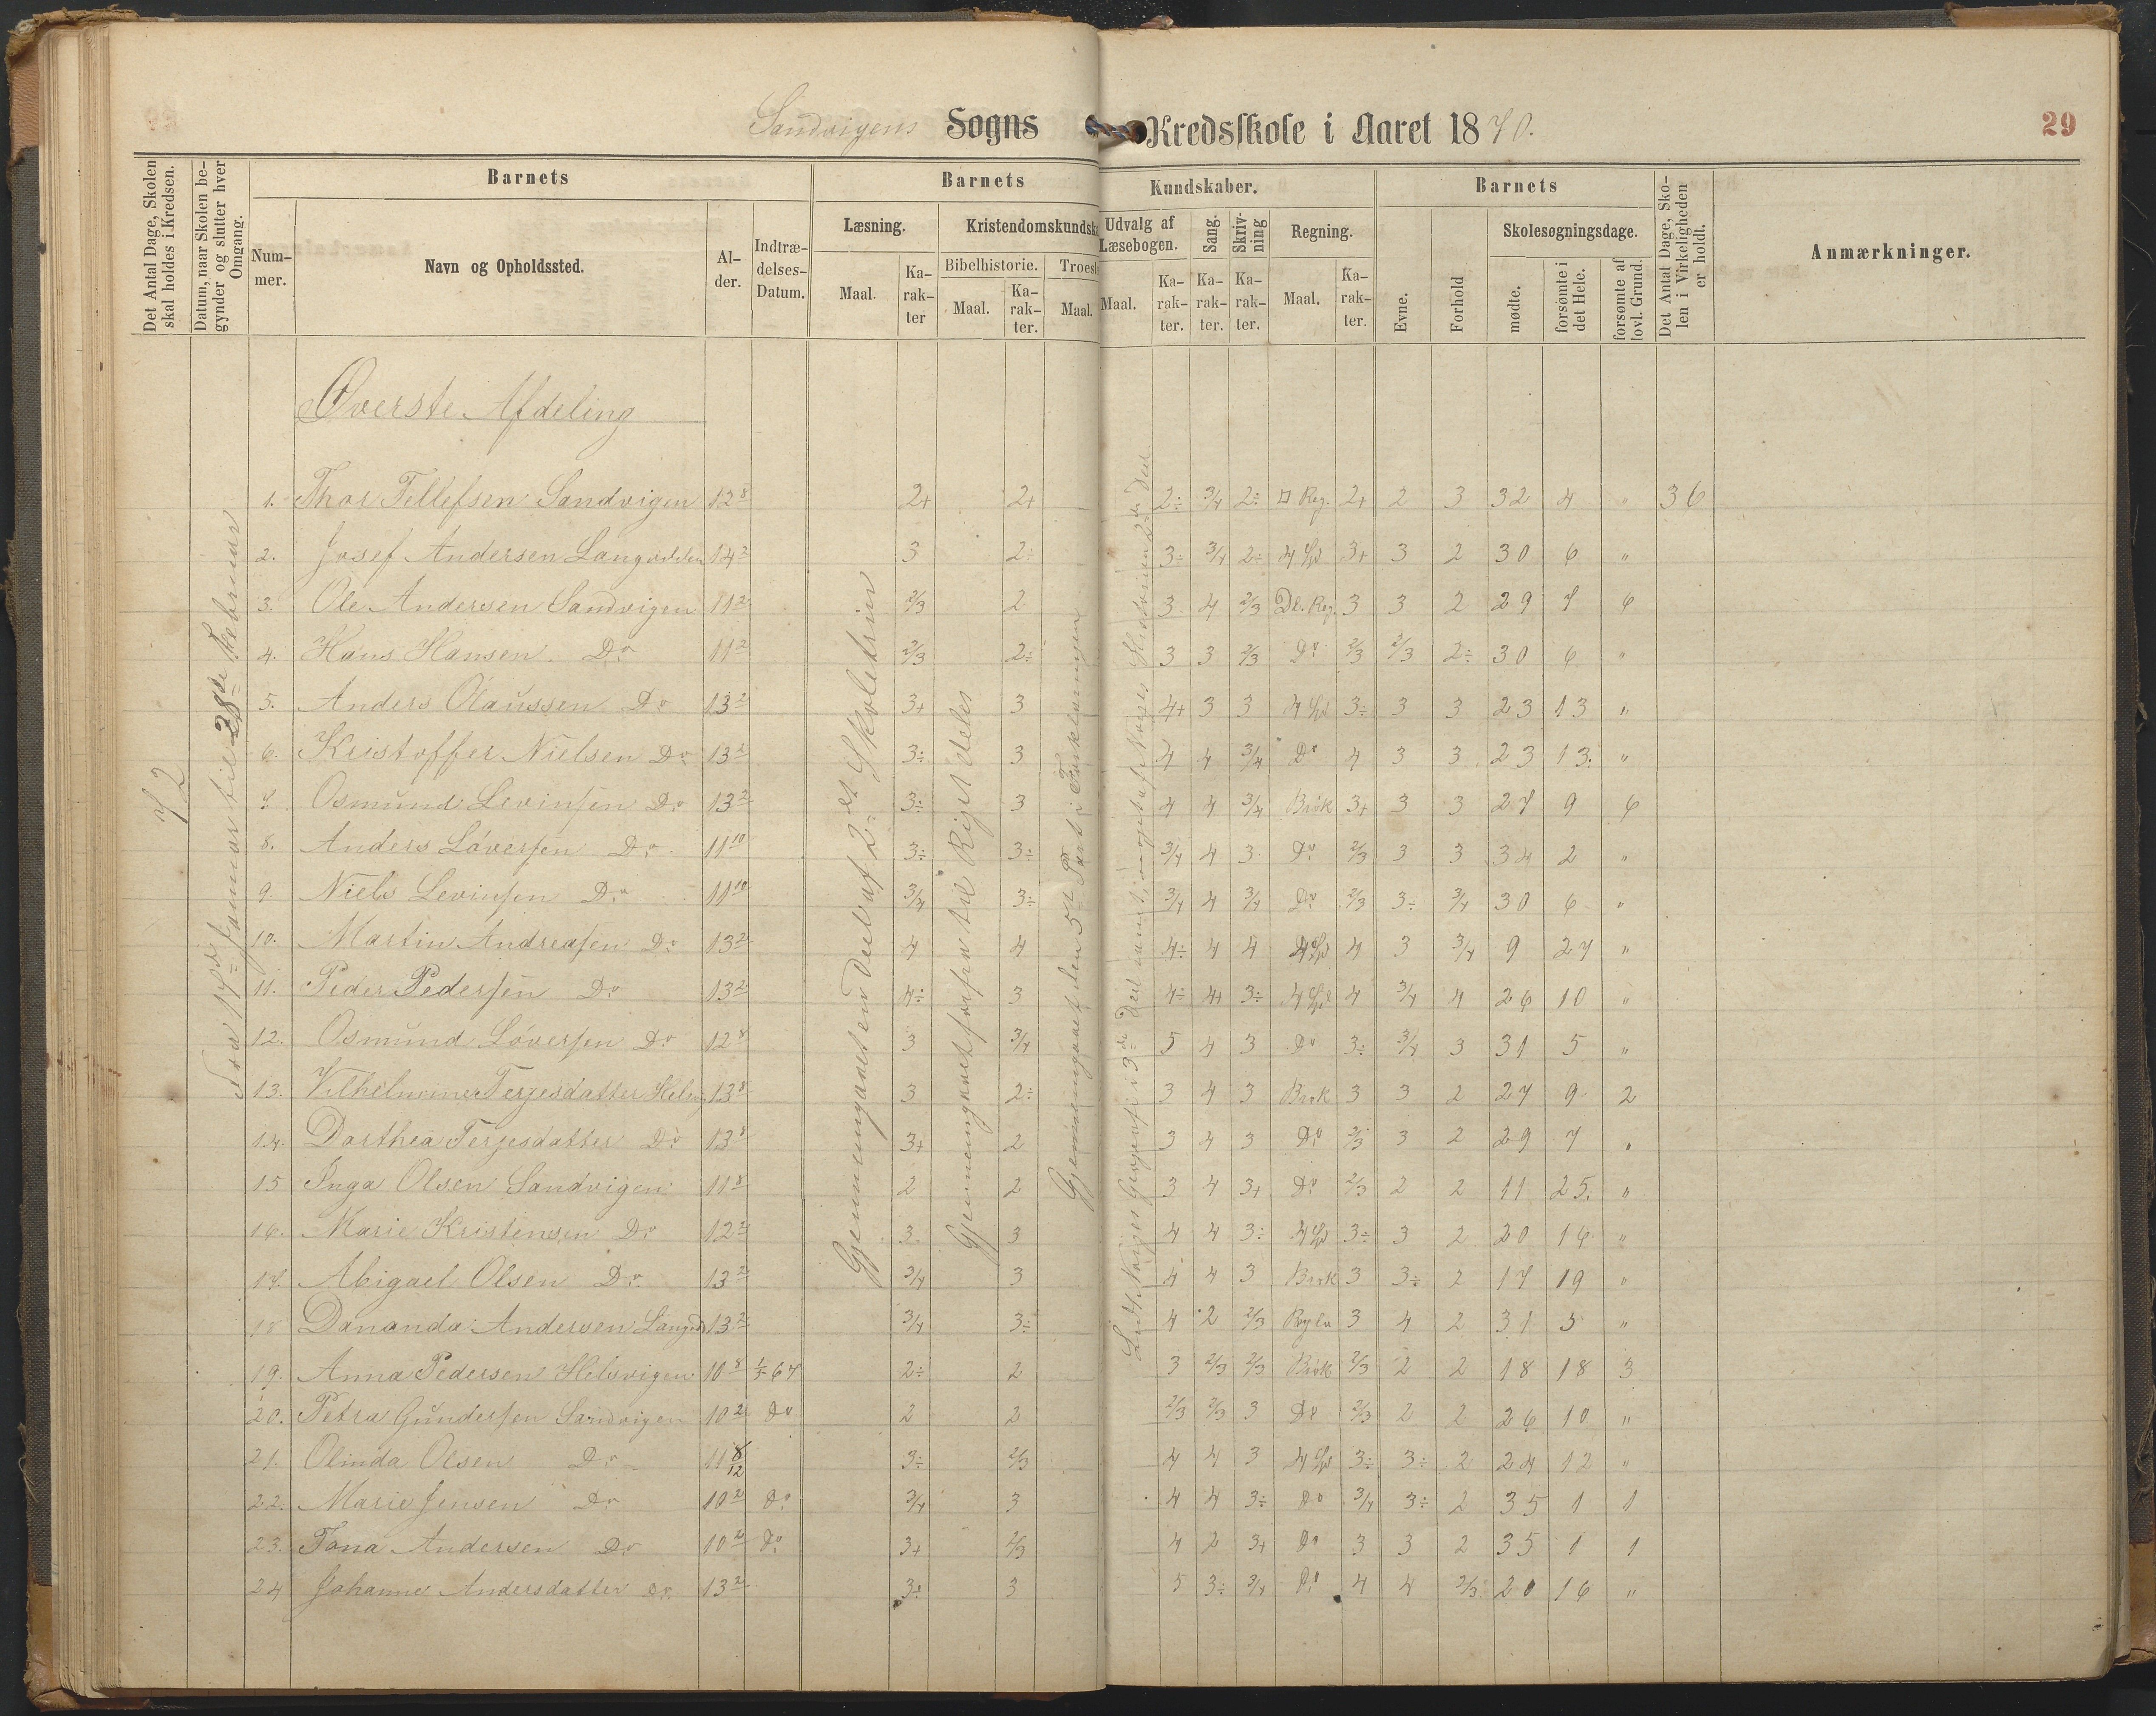 Sandvigens Sogns Kredsskole i Aaret 1870.
29
Det Antal Dage, Skolen skal holdes i Kredsen.
Datum, naar Skolen begynder og slutter hver Omgang.
Barnets
Nummer.
Navn og Opholdssted.
Alder.
Indtrædelses-Datum.
Barnets
Læsning.
Maal.
Karakter
Kristendomskundsk
Bibelhistorie.
Maal.
Karakter.
Troesl
Maal.
Kundskaber.
Udvalg af Læsebogen.
Maal.
Karakter.
Sang.
Karakter.
Skrivning
Karakter.
Regning.
Maal.
Karakter.
Barnets
Evne.
Forhold
Skolesøgningsdage.
mødte.
forsømte i det Hele.
forsømte af lovl. Grund.
Det Antal Dage, Skolen i Virkeligheden er holdt.
Anmærkninger.
Øverste Afdeling
72
Fra 17de Januar til 28de Februar
Gjennemgaaet en Deel af 2det Skoletrin
Gjennemgaaet forfra til Riget deles
Gjennemgaaet den 5te Part i Forklaringen
1. Thor Tellefsen Sandvigen 12 8 2+ 2+ 2÷ 3/4 2÷ □ Reg. 2+ 2 3 32 4 " 36
2. Josef Andersen Langodden 14 2 3 2÷ 3÷ 3/4 2÷ 4 Sp 3+ 3 2 30 6 "
3. Ole Andersen Sandvigen 11 2 2/3 2 3 4 2/3 Dl. Reg. 3 3 2 29 7 6
4. Hans Hansen Do 11 2 2/3 2÷ 3 3 2/3 Do 2/3 2/3 2÷ 30 6 "
5. Anders Olaussen Do 13 2 3+ 3 4+ 3 3 4 Sp 3÷ 3 3 23 13 "
6. Kristoffer Nielsen Do 13 2 3÷ 3 4 4 3/4 Do 4 3 3 23 13. "
7. Osmund Levinsen Do 13 2 3÷ 3 4 4 3/4 Brøk 3+ 3 3 27 9 6
8. Anders Løversen Do 11 10 3÷ 3÷ 3/4 4 3 Do 2/3 3 3 34 2 "
9. Niels Levinsen Do 11 10 3/4 3÷ 3/4 4 3/4 Do 2/3 3÷ 3/4 30 6 "
10. Martin Andreasen Do 13 2 4 4 4÷ 4 4 4 Sp 4 3 3/4 9 27 "
11. Peder Pedersen Do 13 2 4÷ 3 4÷ 4+ 3÷ 4 Sp 4 3/4 4 26 10 "
12. Osmund Løversen Do 12 8 3 3/4 5 4 3 Do 3÷ 3/4 3 31 5 "
13. Vilhelmine Terjesdatter 13 8 3 2÷ 3 4 3 Brøk 3 3 2 27 9 2
14. Dorthea Terjesdatter Do 13 8 3+ 2 3 4 3 Do 2/3 3 2 29 7 "
15 Inga Olsen Sandvigen 11 8 2 2 3 4 3+ Do 2/3 2 2 11 25 "
16. Marie Kristensen Do 12 2 3 3 4 4 3÷ 4 Sp 3÷ 3 2 20 16 "
17. Abigael Olsen Do 13 2 3/4 3 4 4 3 Brøk 3 3÷ 2 17 19 "
18 Dananda Andersen 13 2 3/4 3÷ 4 2 2/3 3 4 2 31 5 "
19. Anna Pedersen Helsvigen 10 8 67 2÷ 2 3 2/3 2/3 Brøk 2/3 2 2 18 18 3
20. Petra Gundersen Sandvigen 10 2 Do 2 2 2/3 2/3 3 Do 2/3 2 2 26 10 "
21. Olinda Olsen Do 11 8/12 3÷ 2/3 4 4 3 4 Sp 3÷ 3÷ 2 24 12 "
22. Marie Jensen Do 10 2 Do 3/4 3 4 4 3÷ Do 3/4 3÷ 2 35 1 1
23. Tona Andersen Do 10 2 Do 3+ 2/3 4 2 3+ Do 3 3 2 35 1 1
24 Johanne Andersdatter Do 13 2 3÷ 3 5 3÷ 3/4 Do 4 4 2/3 20 16 "